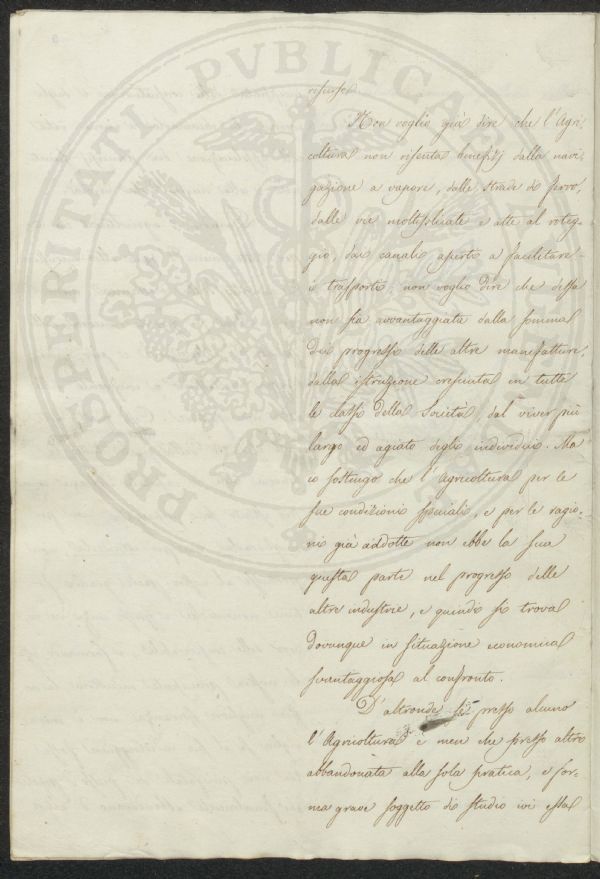 PROSPERITATI PVBLICAE
riforse
Non voglio già dire che l'Agri-
coltura non risenta benefizj dalla navi-
gazione a vapore, dalle strade di ferro,
dalle vie moltiplicate e atte al roteg-
gio, dai canali aperti a facilitare
i trasporti; non voglio dire che dessa
non sia avvantaggiata dalla somma
dei progressi delle altre manifatture,
dalla istruzione cresciuta in tutte
le classi della Società, dal viver più
largo ed agiato degli individui. Ma
io sostengo che l'Agricoltura per le
sue condizioni speciali, e per le ragio-
ni già addotte non ebbe la sua
giusta parte nel progresso delle
altre industrie, e quindi si trova
dovunque in situazione economica
svantaggiosa al confronto.
D'altronde se presso alcuno
l'Agricoltura è men che presso altro
abbandonata alla sola pratica, e for-
ma grave soggetto di studio ivi essa